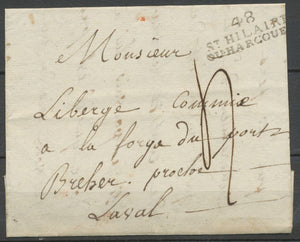 48
ST HILAIRE
DU-HARCOUE
Monsieur
Liberge Commis
a la forge du port
Breher proche
Laval
4